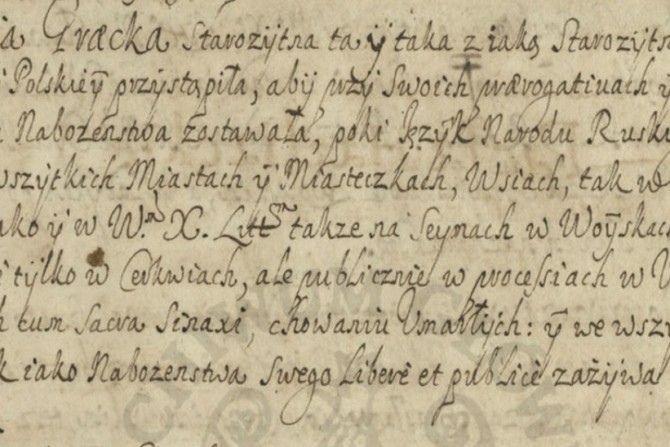 ia Græcka Starozÿtna ta ÿ taka z iaką Starozÿtn
i Polskieÿ przÿstąpiła, abÿ przÿ Swoich prærogatiuach ÿ
Nabozeństwa zostawała, poki Językÿ Narodu Ruski
wszÿtkich Miastach ÿ Miasteczkach, Wsiach, tak w
ako ÿ w W.m X. Littm takze na Seÿmach w Woÿskach
i tÿlko w Cerkwiach, ale publicznie w processiach w
h cum Sacra Sinaxi, chowaniu Umarłÿch: ÿ we wszÿ
k iako Nabozenstwa Swego Liberè et publicè zazÿwa